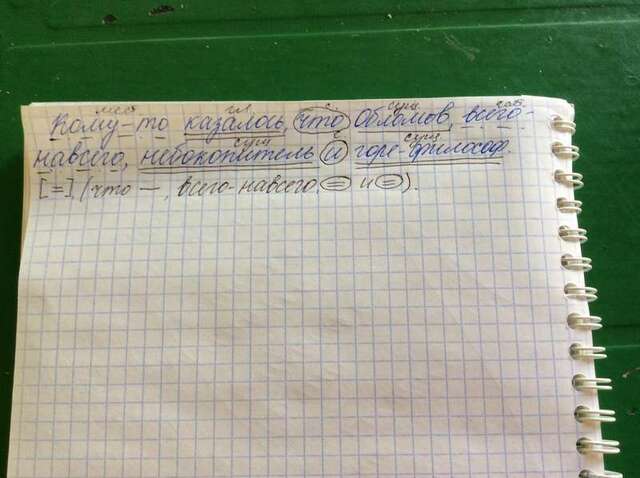 мес гл с сущ част
Кому-то казалось, что Обломов, всего-
сущ сущ
навсего, небокоптитель и горе-философ.
[=], (что —, всего-навсего = и =).